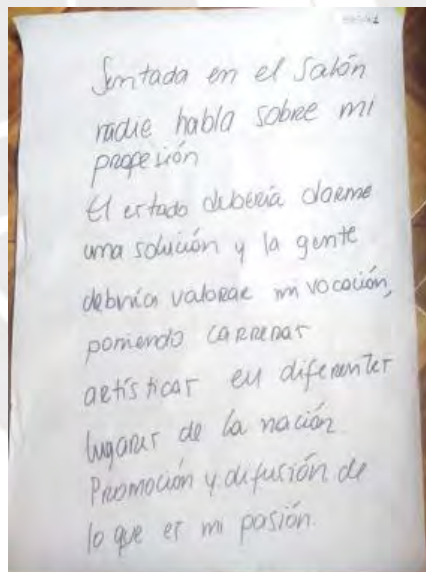 Sentada en el Salón
nadie habla sobre mi
profesión
El estado debería darme
una solución y la gente
debería valorar mi vocación,
poniendo carreras
artísticas en diferentes
lugares de la nación.
Promoción y difusión de
lo que es mi pasión.